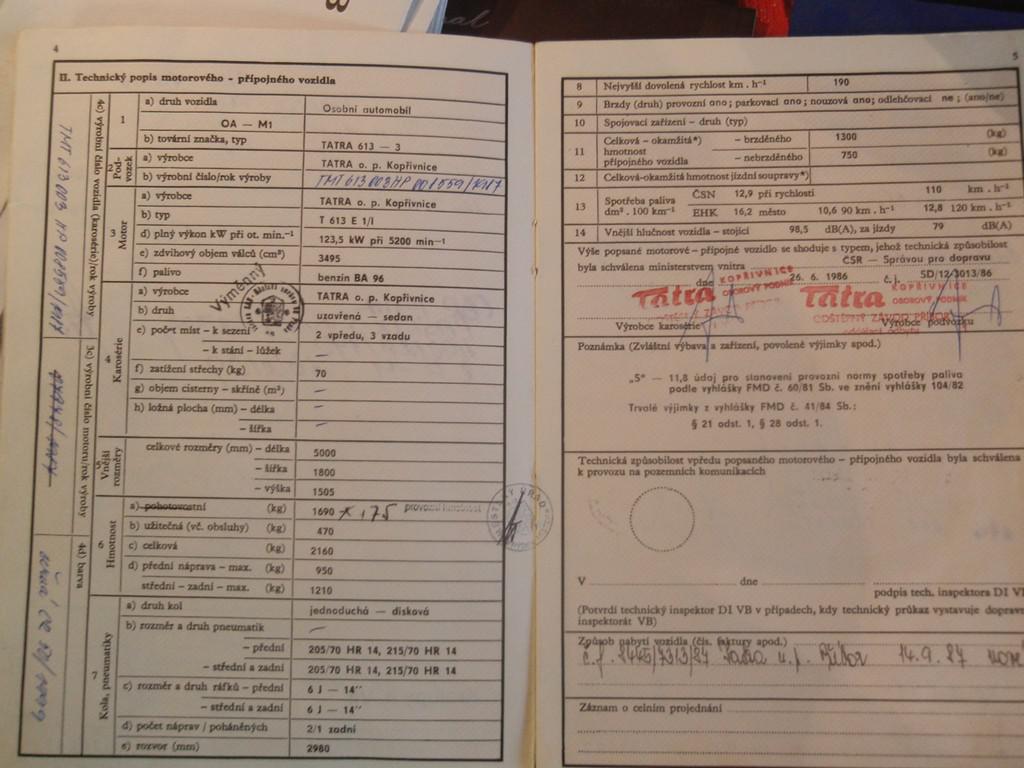 4
II. Technický popis motorového – přípojného vozidla
1
a) druh vozidla Osobní automobil
OA — M1
b) tovární značka, typ TATRA 613 — 3
2 Podvozek
a) výrobce TATRA o. p. Kopřivnice
b) výrobní číslo/rok výroby TMT 613 003 HP
3 Motor
a) výrobce TATRA o. p. Kopřivnice
b) typ T 613 E 1/I
d) plný výkon kW při ot. min.⁻¹ 123,5 kW při 5200 min⁻¹
e) zdvihový objem válců (cm³) 3495
f) palivo benzin BA 96
Výměnný
4 Karosérie
a) výrobce TATRA o. p. Kopřivnice
b) druh uzavřená — sedan
e) počet míst – k sezení 2 vpředu, 3 vzadu
– k stání – lůžek —
f) zatížení střechy (kg) 70
g) objem cisterny – skříně (m³) —
h) ložná plocha (mm) – délka —
– šířka —
5 Vnější rozměry
celkové rozměry (mm) – délka 5000
– šířka 1800
– výška 1505
6 Hmotnost
a) pohotovostní (kg) 1690 provozní
b) užitečná (vč. obsluhy) (kg) 470
c) celková (kg) 2160
d) přední náprava – max. (kg) 950
střední – zadní – max. (kg) 1210
7 Kola, pneumatiky
a) druh kol jednoduchá — disková
b) rozměr a druh pneumatik —
– přední 205/70 HR 14, 215/70 HR 14
– střední a zadní 205/70 HR 14, 215/70 HR 14
c) rozměr a druh ráfků – přední 6 J — 14"
– střední a zadní 6 J — 14"
d) počet náprav / poháněných 2/1 zadní
e) rozvor (mm) 2980
4c) výrobní číslo vozidla (karosérie)/rok výroby
TMT 613 003 HP
3c) výrobní číslo motoru/rok výroby
4d) barva
5
8 Nejvyšší dovolená rychlost km . h⁻¹ 190
9 Brzdy (druh) provozní ano; parkovací ano; nouzová ano; odlehčovací ne ; (ano/ne)
10 Spojovací zařízení – druh (typ)
11 Celková – okamžitá*) – brzděného 1300 (kg)
hmotnost
přípojného vozidla – nebrzděného 750 (kg)
12 Celková-okamžitá hmotnost jízdní soupravy*)
13 Spotřeba paliva ČSN 12,9 při rychlosti 110 km . h⁻¹
dm³ . 100 km⁻¹ EHK 16,2 město 10,6 90 km . h⁻¹ 12,8 120 km . h⁻¹
14 Vnější hlučnost vozidla – stojící 98,5 dB(A), za jízdy 79 dB(A)
Výše popsané motorové – přípojné vozidlo se shoduje s typem, jehož technická způsobilost
ČSR — Správou pro dopravu
byla schválena ministerstvem vnitra
dne 26. 6. 1986 č. j. SD/12/3013/86
Tatra KOPŘIVNICE OBOROVÝ PODNIK
Tatra KOPŘIVNICE OBOROVÝ PODNIK
ZÁVOD PŘÍBOR
Výrobce karosérie Výrobce podvozku
Poznámka (Zvláštní výbava a zařízení, povolené výjimky apod.)
„S" — 11,8 údaj pro stanovení provozní normy spotřeby paliva
podle vyhlášky FMD č. 60/81 Sb. ve znění vyhlášky 104/82
Trvalé výjimky z vyhlášky FMD č. 41/84 Sb.:
§ 21 odst. 1, § 28 odst. 1.
Technická způsobilost vpředu popsaného motorového – přípojného vozidla byla schválena
k provozu na pozemních komunikacích
V dne
podpis tech. inspektora DI V
(Potvrdí technický inspektor DI VB v případech, kdy technický průkaz vystavuje doprav
inspektorát VB)
Způsob nabytí vozidla (čís. faktury apod.)
č.f. 2445/7313/87 Tatra n.p. Příbor 14.9.87
Záznam o celním projednání